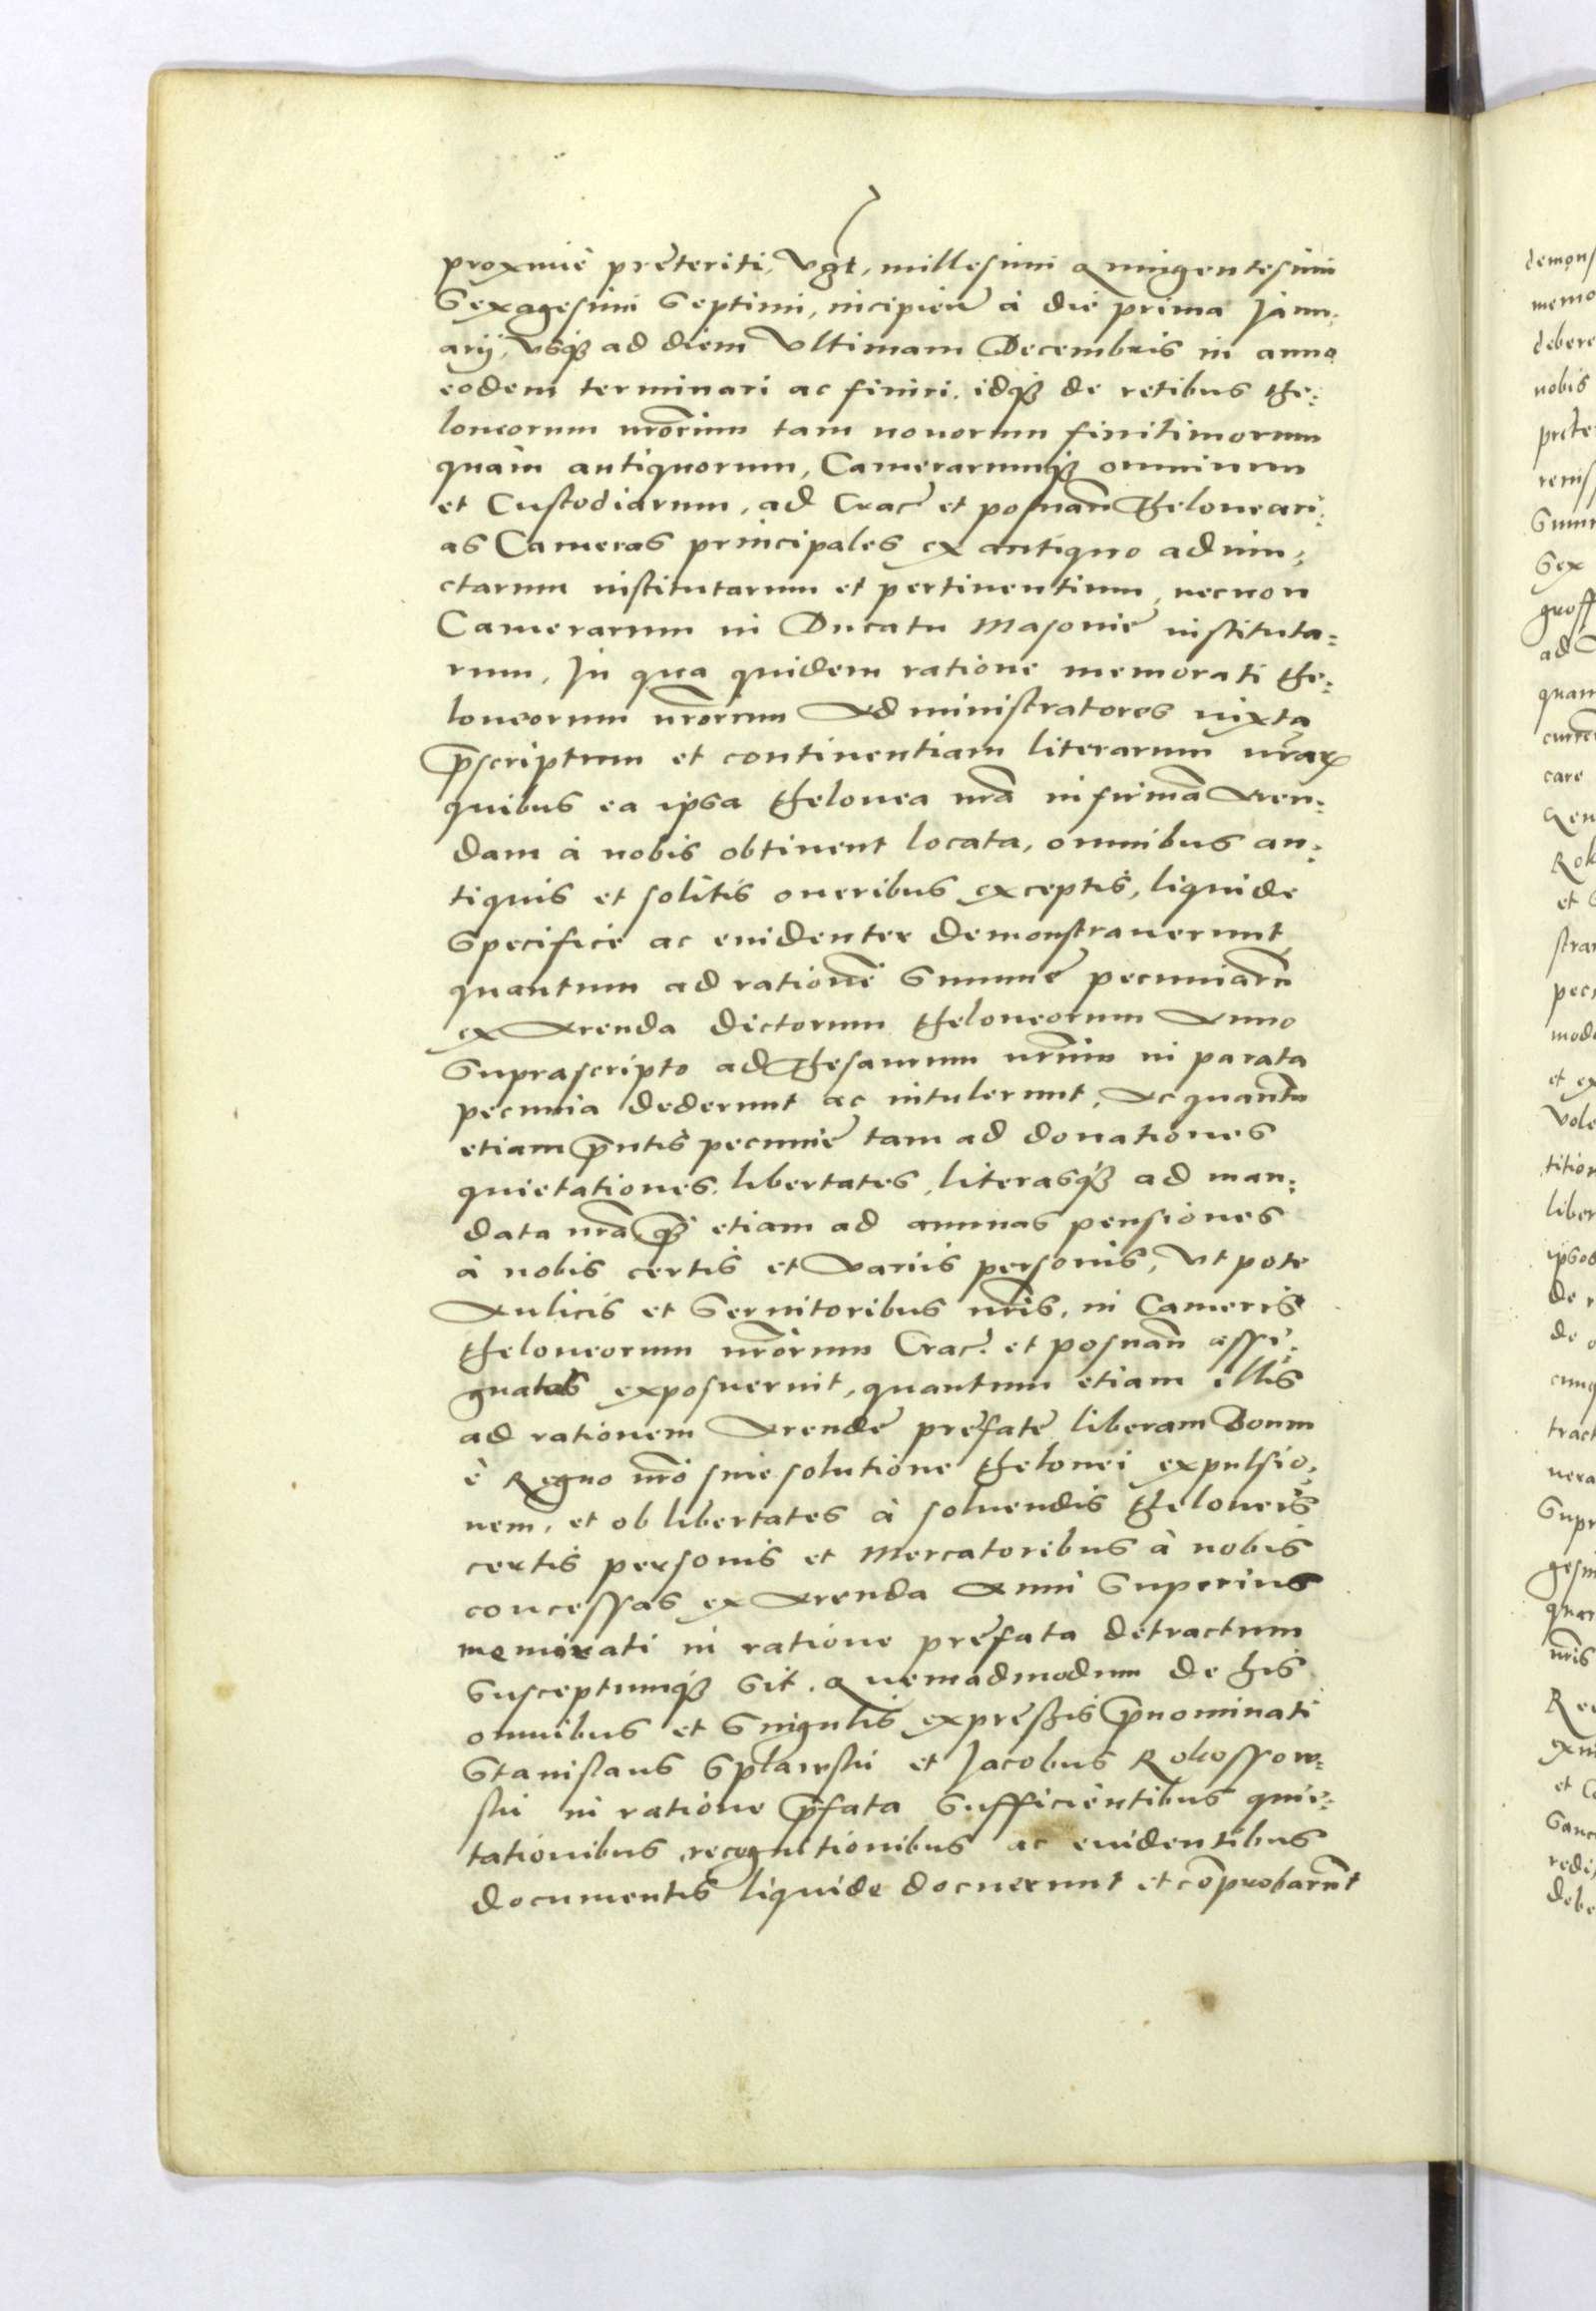 proximè preteriti, vɀt, millesimi Quingentesimi
Sexagesimi Septimi, incipieñ à die prima Janu:
arij, vsq̃ ad diem vltimam Decembris in anno
eodem terminari ac finiri. idq̃ de retibus the:
loneorum nrõrum tam nouorum finitimorum
quàm antiquorum, Camerarumq̃ omnium
et Custodiarum, ad Crac̃ et posnañ theloneari:
as Cameras principales ex antiquo adiun:
ctarum institutarum et pertinentium, necnon
Camerarum in Ducatu Masoniẽ instituta:
rum, In qua quidem ratione memorati the:
loneorum nrõrum Administratores iuxta
p̃scriptum et continentiam literarum nrãꝝ
quibus ea ipsa thelonea nrã in firmã Aren:
dam à nobis obtinent locata, omnibus an:
tiquis et solitis oneribus exceptis, liquide
Specifice ac euidenter demonstrauerunt
quantum ad rationẽ Summẽ pecuniarũ
ex Arenda dictorum theloneorum Anno
Suprascripto ad thesaurum nrũm in parata
pecunia dederunt ac intulerunt, Ac quantũ
etiam p̃ntis pecuniẽ tam ad donationes
quietationes, libertates, literasq̃ ad man:
data nrã q̃ etiam ad annuas pensiones
à nobis certis et varijs personis, vt pote
Aulicis et Seruitoribus nrĩs, in Cameris
theloneorum nrõrum Crac̃. et posnañ assi:
gnatas exposuerint, quantum etiam illis
ad rationem Arendẽ prefatẽ liberam Boum
è Regno nrõ sine solutione thelonei expulsio:
nem, et ob libertates à soluendis theloneis
certis personis et Mercatoribus à nobis
concessas ex Arenda Anni Superius
memorati in ratione prefata detractum
Susceptumq̃ Sit. Quemadmodum de his
omnibus et Singulis expressis p̃nominati
Stanislaus Splawski et Jacobus Rokossow:
ski in ratione p̃fata Sufficientibus quie:
tationibus recognitionibus ac euidentibus
documentis liquide docuerunt et cõprobarũt